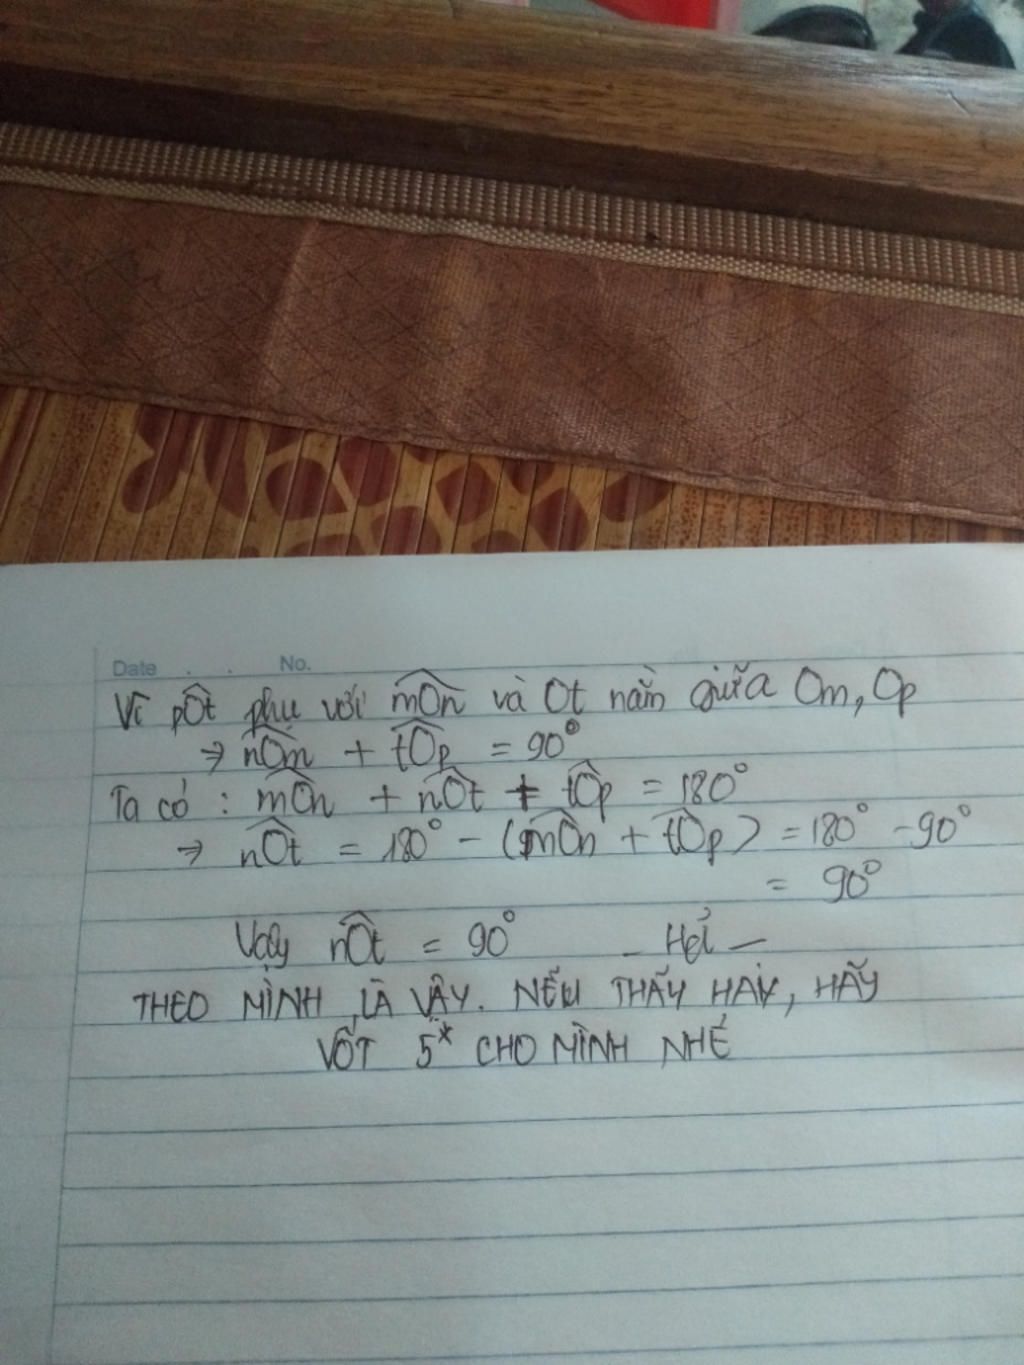 Date . . No.
Vì pÔt phụ với mÔn và Ot nằm giữa Om, Op
→ nÔm + tÔp = 90°
Ta có : mÔn + nÔt + tÔp = 180°
→ nÔt = 180° - (mÔn + tÔp) = 180° - 90°
= 90°
Vậy nÔt = 90° - Hết -
THEO MÌNH LÀ VẬY. NẾU THẤY HAY, HÃY
VỐT 5* CHO MÌNH NHÉ